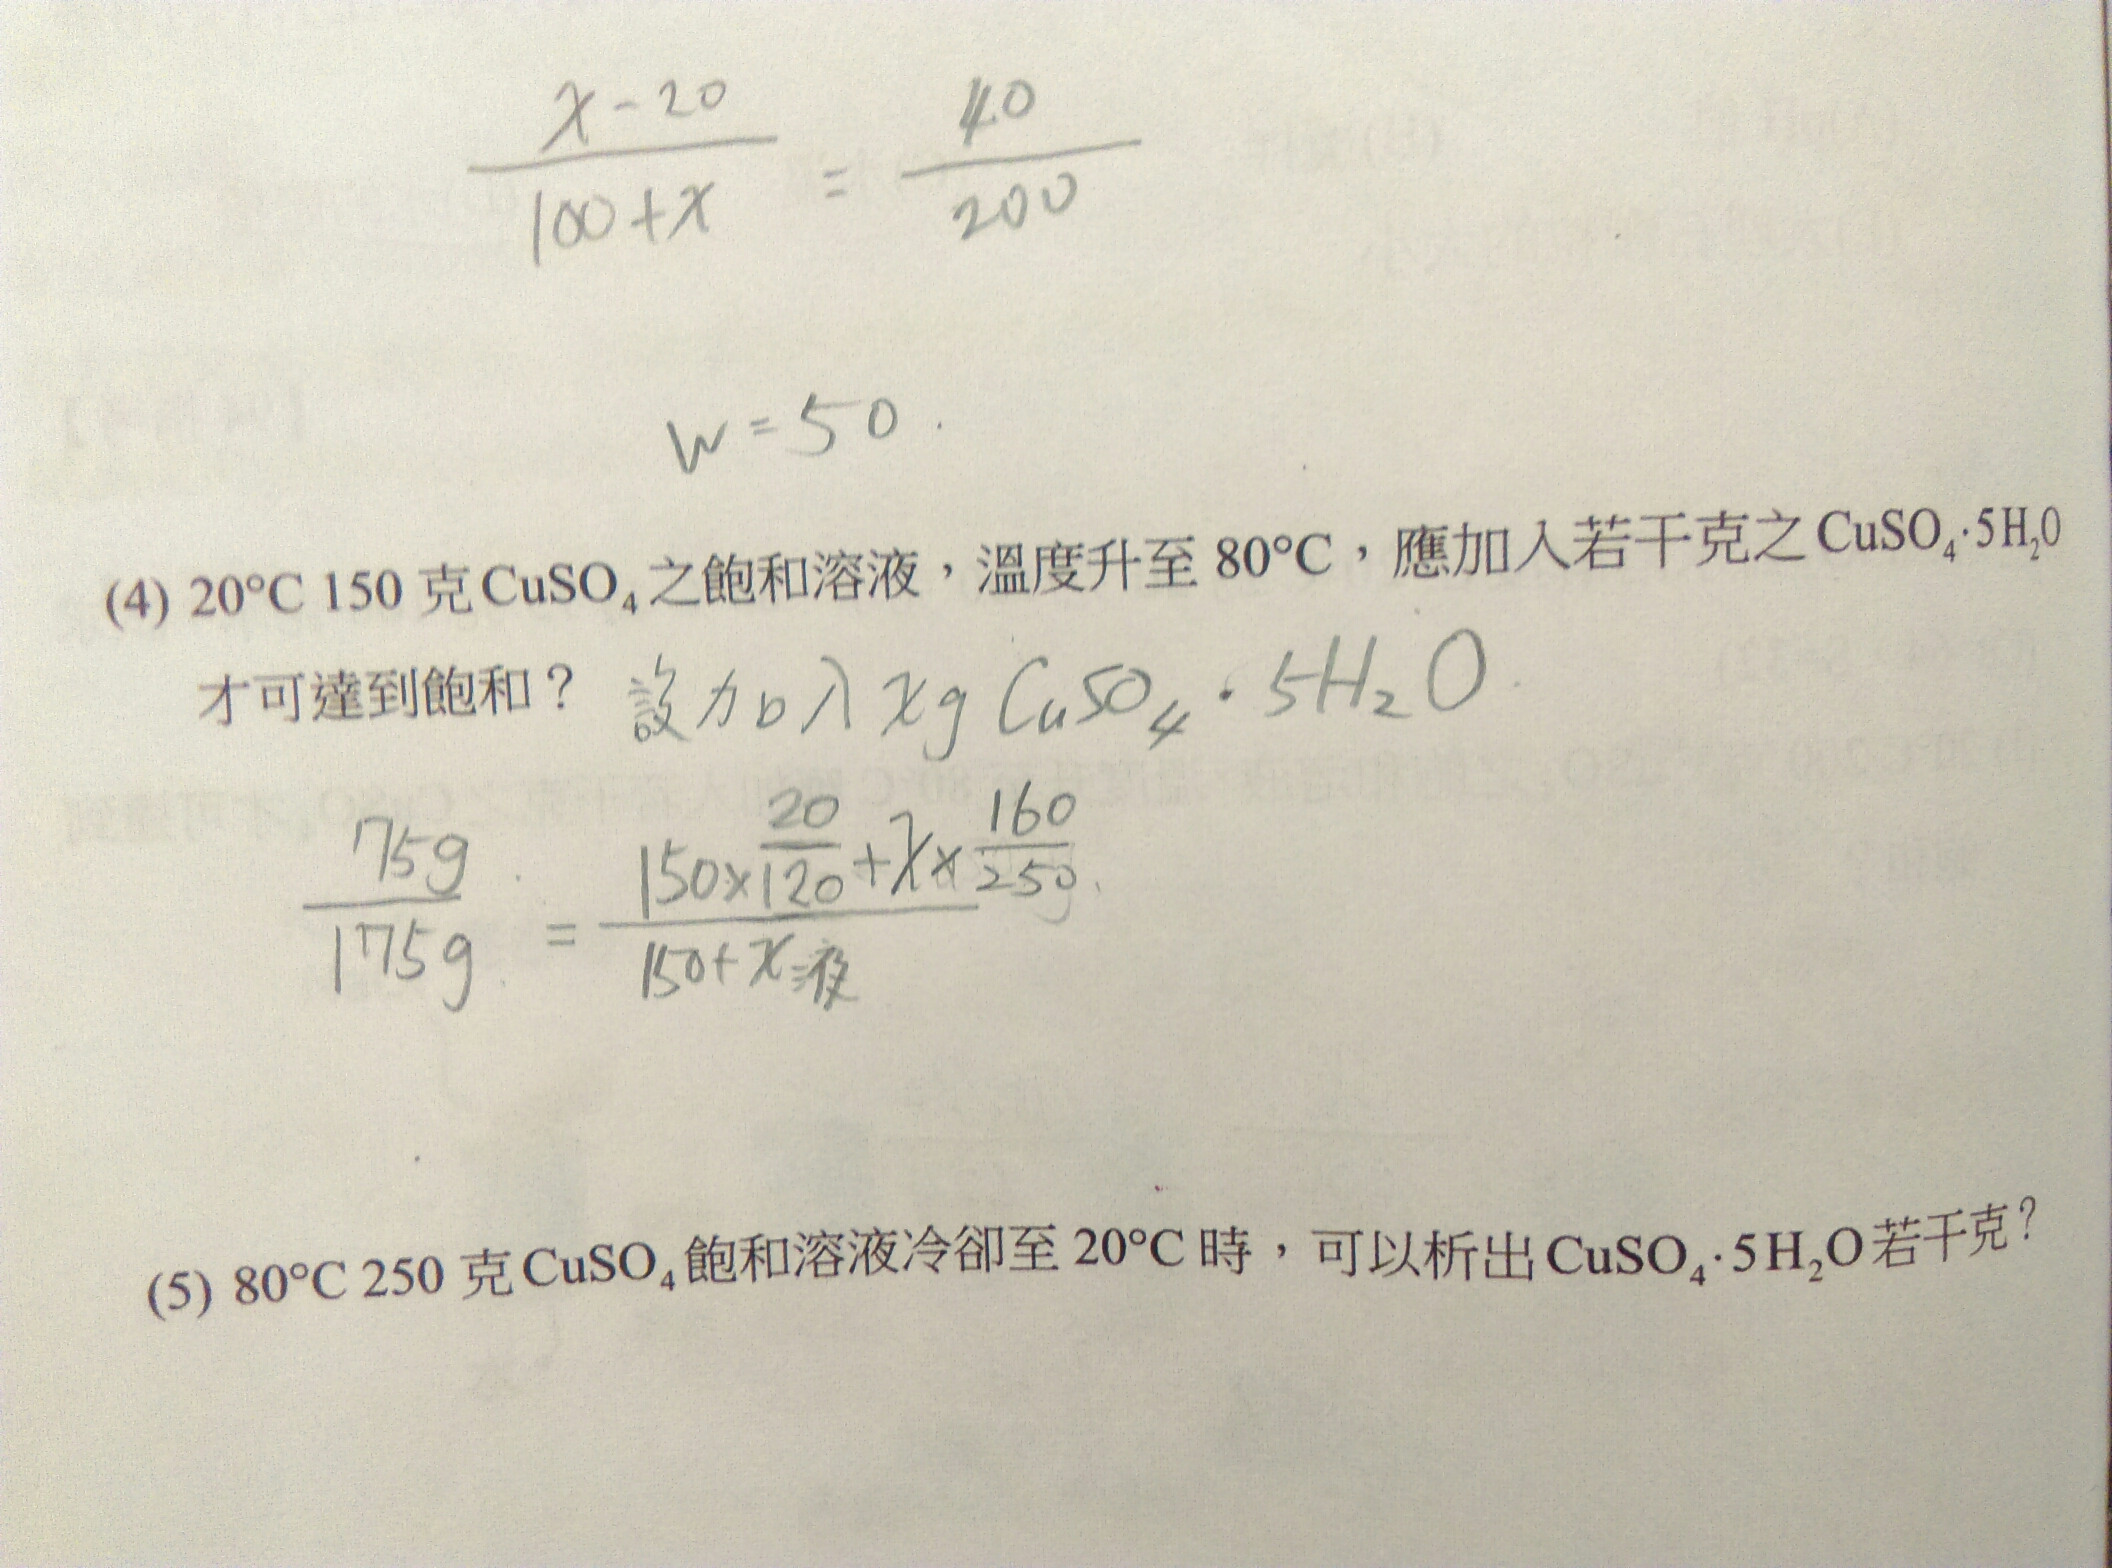 x-20 / 100+x = 40 / 200
W=50.
(4) 20°C 150 克CuSO₄之飽和溶液，溫度升至 80°C，應加入若干克之CuSO₄·5H₂O
才可達到飽和？ 設加入xg CuSO₄·5H₂O.
75g / 175g = 150×20/120+x×160/250 / 150+x液
(5) 80°C 250 克CuSO₄飽和溶液冷卻至 20°C 時，可以析出CuSO₄·5H₂O若干克？